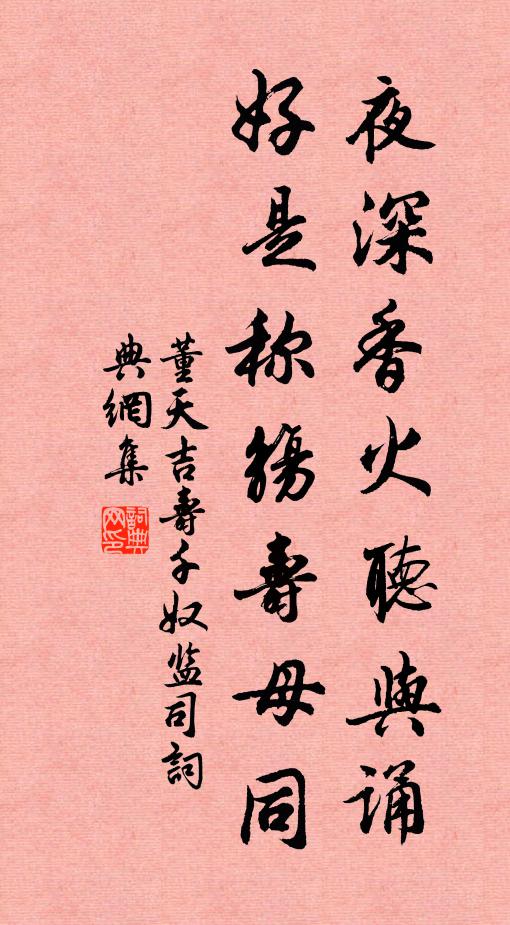 夜深香火聽輿誦
好是称觴壽母同
董天吉壽千奴监司詞
典網集
詞典网印